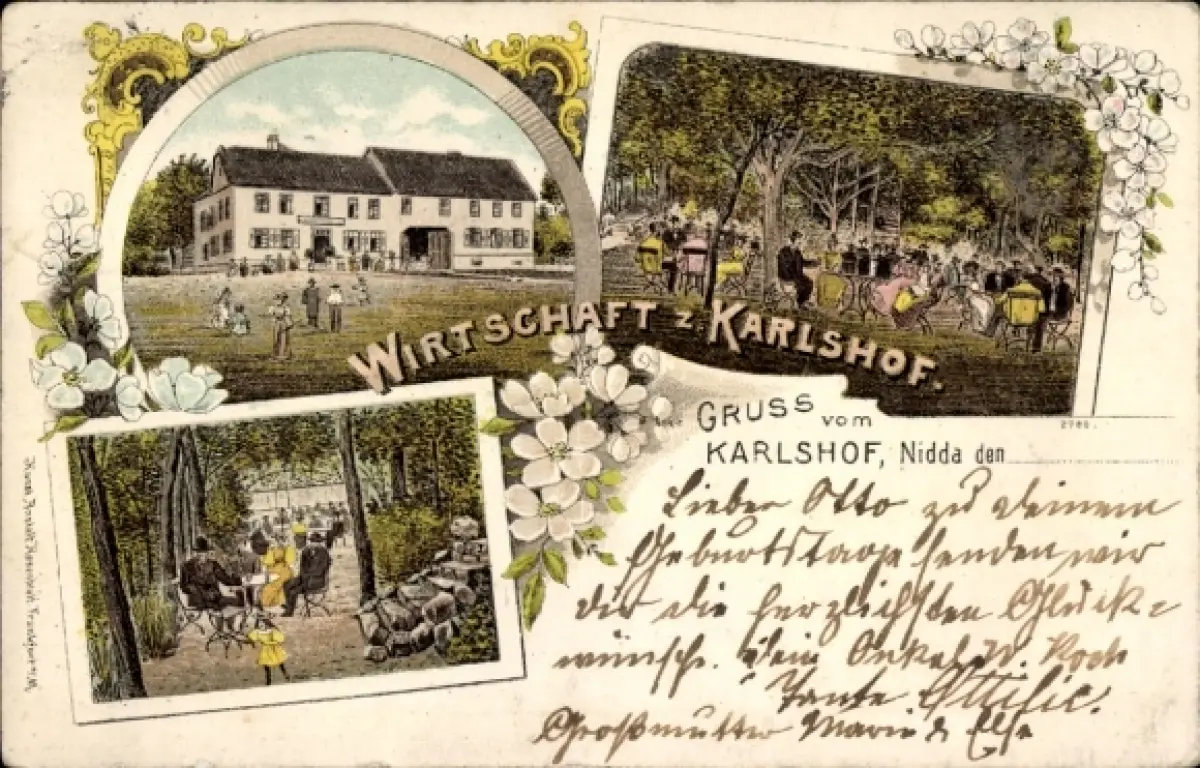 WIRTSCHAFT z KARLSHOF.
2780.
GRUSS vom
KARLSHOF, Nidda den
Lieber Otto zu deinem
Geburtstage senden wir
dir die herzlichsten Glück-
wünsche. Dein Onkel W. Koch
Tante Ottilie.
Großmutter Marie & Else
Kunst
Frankfurt a. M.